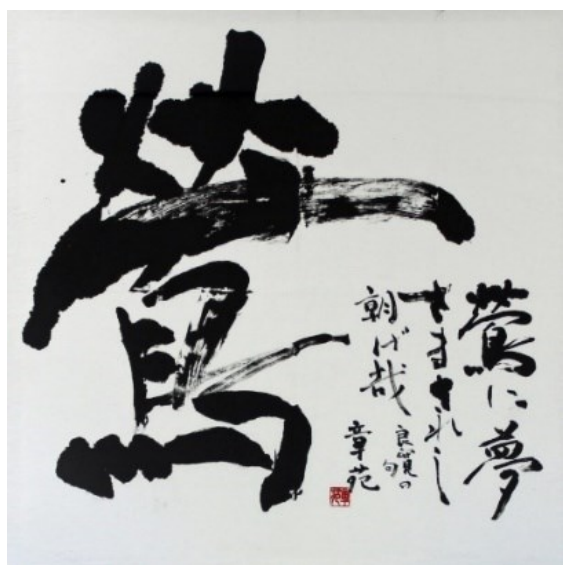 鶯
鶯に夢
さまされし
朝げ哉
良寛の
句
章苑